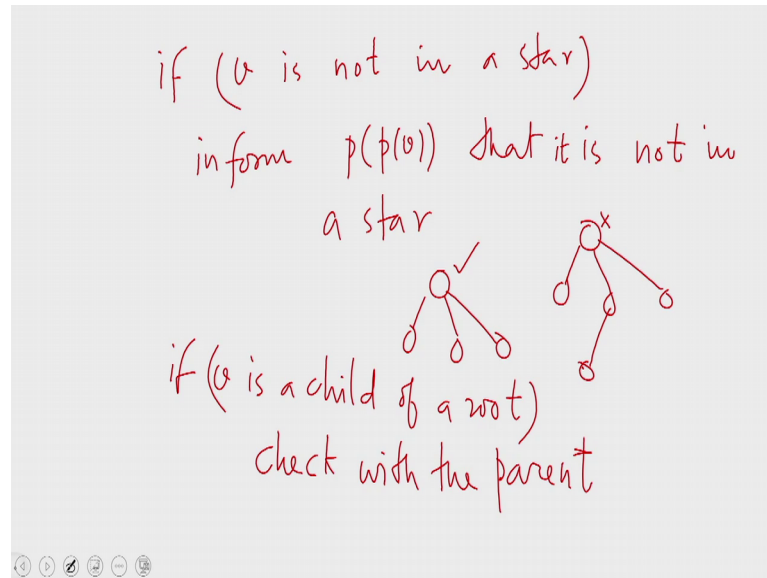 if (v is not in a star)
inform p(p(v)) that it is not in
a star
if (v is a child of a root)
check with the parent